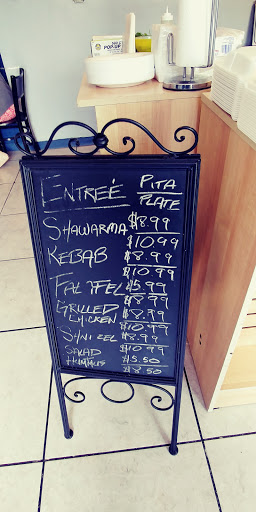 ENTREÉ PITA
PLATE
SHAWARMA $8.99
$10.99
KEBAB $8.99
$10.99
FALAFEL $5.99
$8.99
GRILLED CHICKEN $8.99
$10.99
SHNIZEL $8.99
$10.99
SALAD $5.50
HUMMUS $8.50